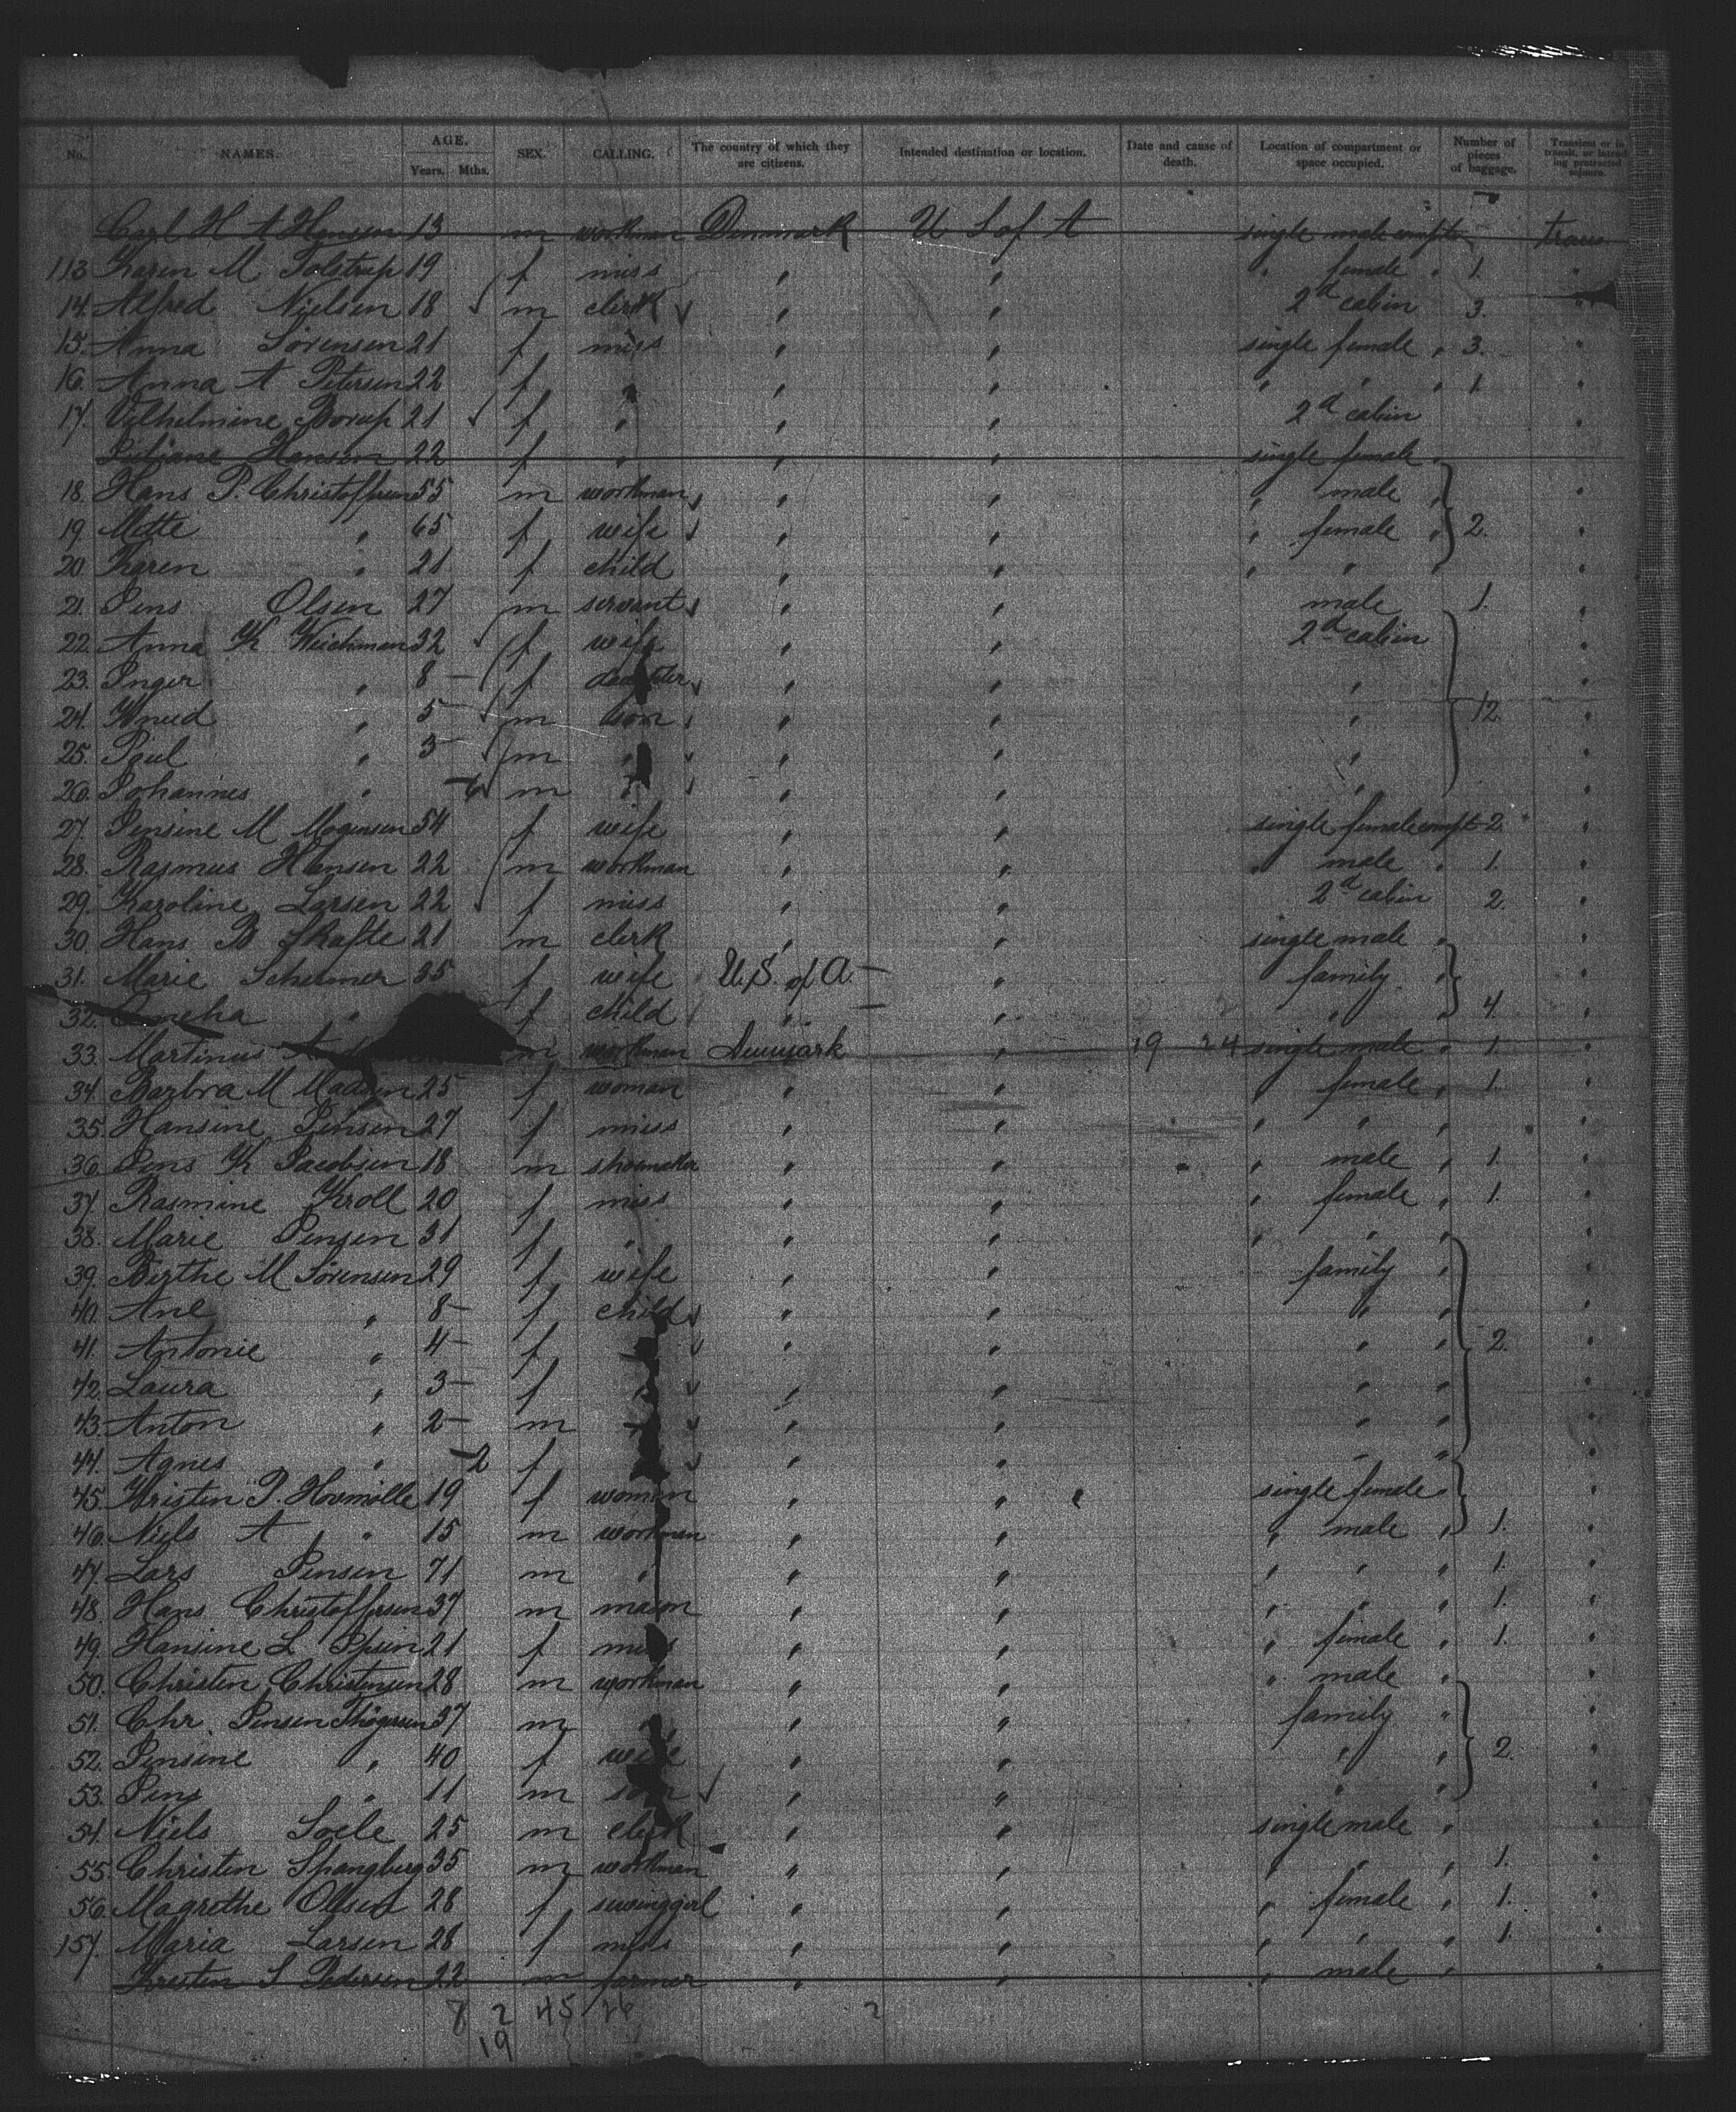 No. NAMES. AGE. Years. Mths. SEX. CALLING. The country of which they are citizens. Intended destination or location. Date and cause of death. Location of compartment or space occupied. Number of pieces of baggage. Transient or in transit, or intending protracted sojourn.
Carl H A Hansen 13 m workman Denmark U S of A single male compt trans
113 Karen M Tolstrup 19 f miss " " " female " 1. "
14. Alfred Nielsen 18 m clerk " " 2d cabin 3. "
15. Anna Sörensen 21 f miss " " single female " 3. "
16. Anna A Petersen 22 f " " " " " " 1. "
17. Vilhelmine Borup 21 f " " " 2d cabin "
Hansen 22 f " " " single female "
18. Hans P. Christoffersen 55 m workman " " " male " "
19 Mette " 65 f wife " " " female " 2. "
20 Karen " 21 f child " " " " " "
21. Jens Olsen 27 m servant " " male 1. "
22. Anna K Weichman 32 f wife " " 2d cabin "
23. Inger " 8 – f daughter " " " "
24. Knud " 5 – m son " " " 12. "
25. Paul " 3 – m " " " " "
26. Johannes " – 6 m " " " " "
27. Jensine M Mogensen 54 f wife " " single female compt 2. "
28. Rasmus Hansen 22 m workman " " " male " 1. "
29. Karoline Larsen 22 f miss " " 2d cabin 2. "
30. Hans B Skafte 21 m clerk " " single male " "
31. Marie Schermer 25 f wife U.S. of A. – " family " "
32. " f child " – " " " 4. "
33. Martinus m workman Denmark " 19 24 single male " 1. "
34. Barbra M Madsen 25 f woman " " " female " 1. "
35. Hansine Jensen 27 f miss " " " " " "
36. Jens K Jacobsen 18 m shoemaker " " " male " 1. "
37. Rasmine Kroll 20 f miss " " " female " 1. "
38. Marie Jensen 31 f " " " " " " "
39. Birthe M Sörensen 29 f wife " " family " "
40. Ane " 8 – f child " " " " "
41. Antonie " 4 – f " " " " " 2. "
42. Laura " 3 – f " " " " " "
43. Anton " 2 – m " " " " " "
44. Agnes " – 2 f " " " " "
45. Kristen P. Hovmölle 19 f woman " " single female " "
46. Niels A " 15 m workman " " " male " 1. "
47. Lars Jensen 71 m " " " " " " 1. "
48. Hans Christoffersen 37 m mason " " " " " 1. "
49. Hansine L 21 f miss " " " female " 1. "
50. Christen Christensen 28 m workman " " " male " "
51. Chr. Jensen Thögersen 37 m " " " family " "
52. Jensine " 40 f wife " " " " 2. "
53. Jens " 11 m son " " " " "
54. Niels 25 m clerk " " single male " "
55. Christen 35 m workman " " " " " 1. "
56. Magrethe Olsen 28 f sewinggirl " " " female " 1. "
157. Maria Larsen 28 f miss " " " " " 1. "
Kresten S Pedersen 22 m farmer " " " male " "
8 2 45 26 2
19